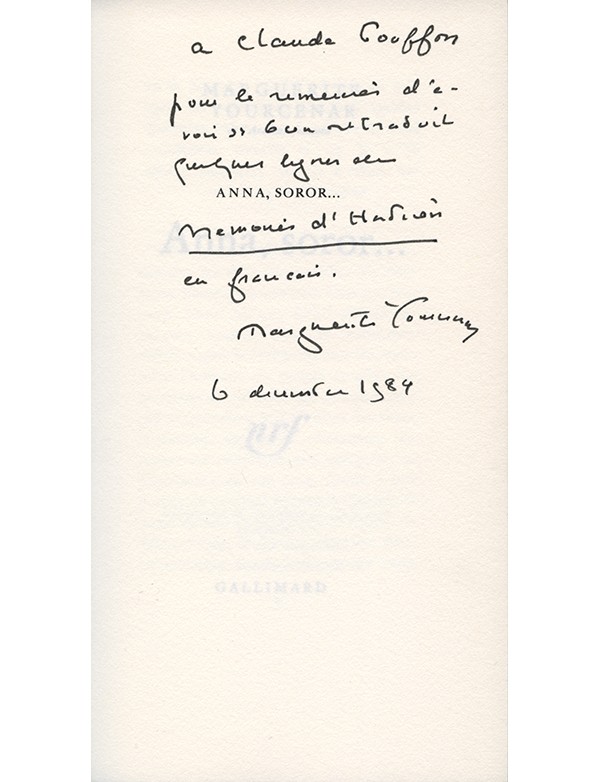 a Claude Couffon
pour le remercier d'a-
voir si bien retraduit
quelques lignes des
ANNA, SOROR...
Memoires d'Hadrien
en francais.
Marguerite Yourcenar
6 decembre 1984
MARGUERITE
YOURCENAR
Anna, soror...
nrf
GALLIMARD